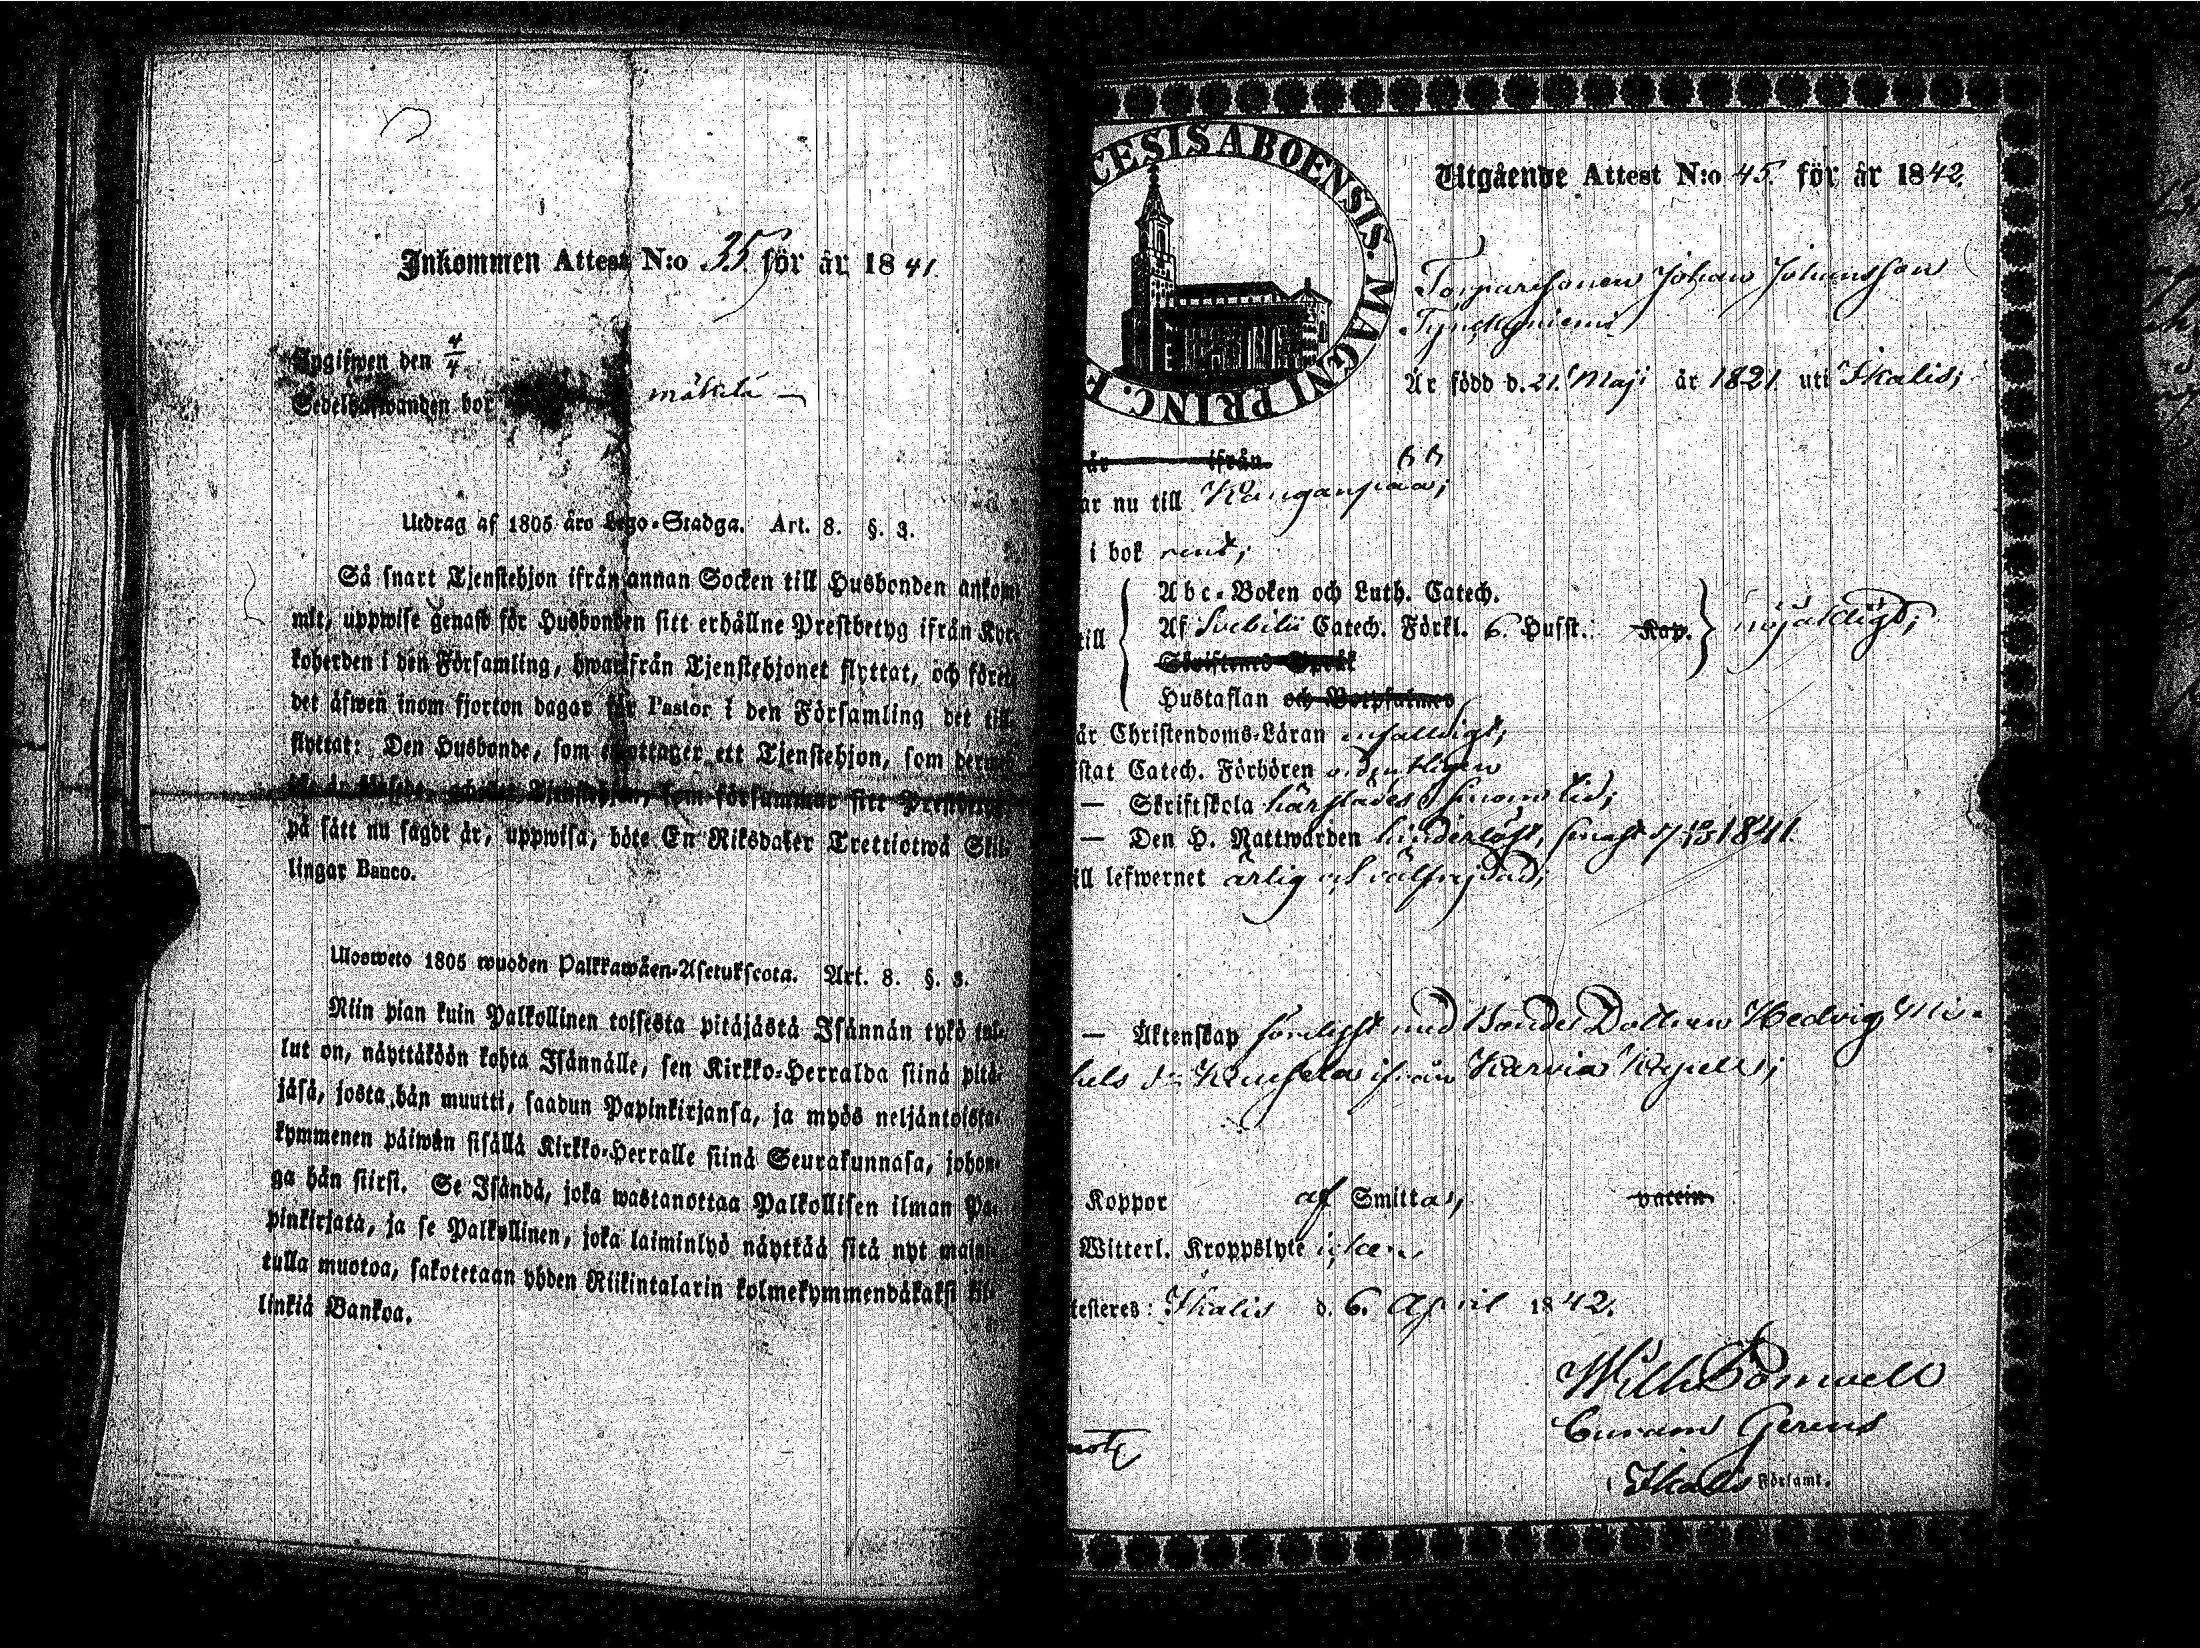 Inkommen Attest N:o 35 för år 1841
Upgifwen den 4/4
Sedelhafwanden bor
Utdrag af 1805 års Lego-Stadga. Art. 8. §. 3.
Så snart Tjenstehjon ifrån annan Socken till Husbonden ankom-
mit, uppwise genast för Husbonden sitt erhållne Prestbetyg ifrån Kyr-
koherden i den Församling, hwarifrån Tjenstehjonet flyttat, och förete
det äfwen inom fjorton dagar för Pastor i den Församling det till-
flyttat: Den Husbonde, som emottager ett Tjenstehjon, som
som försummar sitt
på sätt nu sagdt är, uppwisa, böte En Riksdaler Trettiotwå Skil-
lingar Banco.
Ulosweto 1805 wuoden Palkkawäen-Asetuksesta. Art. 8. §. 3.
Niin pian kuin Palkollinen toisesta pitäjästä Isännän tykö tul-
lut on, näyttäköön kohta Isännälle, sen Kirkko-Herralda siinä pitä-
jäsä, josta hän muutti, saadun Papinkirjansa, ja myös neljäntoista-
kymmenen päiwän sisällä Kirkko-Herralle siinä Seurakunnasa, johon-
ga hän siirsi. Se Isändä, joka wastanottaa Palkollisen ilman Pa-
pinkirjata, ja se Palkollinen, joka laiminlyö näyttää sitä nyt mainit-
tulla muotoa, sakotetaan yhden Riikintalarin kolmekymmendäkaksi kil-
linkiä Bankoa.
CESIS ABOENSIS. MAGNI PRINC. F
Utgående Attest N:o 45. för år 1842.
Torparesonen Johan Johansson
Är född d. 21 Maji år 1821 uti Ikalis;
år ifrån
ar nu till Kanganpää;
i bok rent;
Abc-Boken och Luth. Catech.
till Af Svebilii Catech. Förkl. 6. Husst. Kap. nöjaktigt;
Skriftenes Språk
Hustaflan och Botpsalmer
år Christendoms-Läran enfalldigt;
istat Catech. Förhören ordentligen
— Skriftskola härstädes i sinom tid;
— Den H. Nattwarden hinderlöst, sinast d. 1841.
ill lefwernet ärlig och välfrejdad;
— Äktenskap förlofwd med Bonde Dottren Hedvig Mi-
hels dr ifrån Karvia Kapell;
Koppor af Smitta, vaccin
Witterl. Kroppslyte ingen
testeres: Ikalis d. 6. April 1842.
Wilh
Curam Gerens
Ikalis Församl.